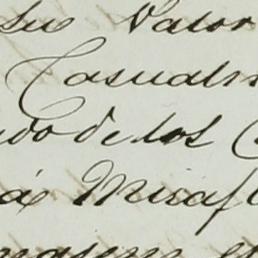 su Valor
Casualm
ado de los C
a á Mirafl